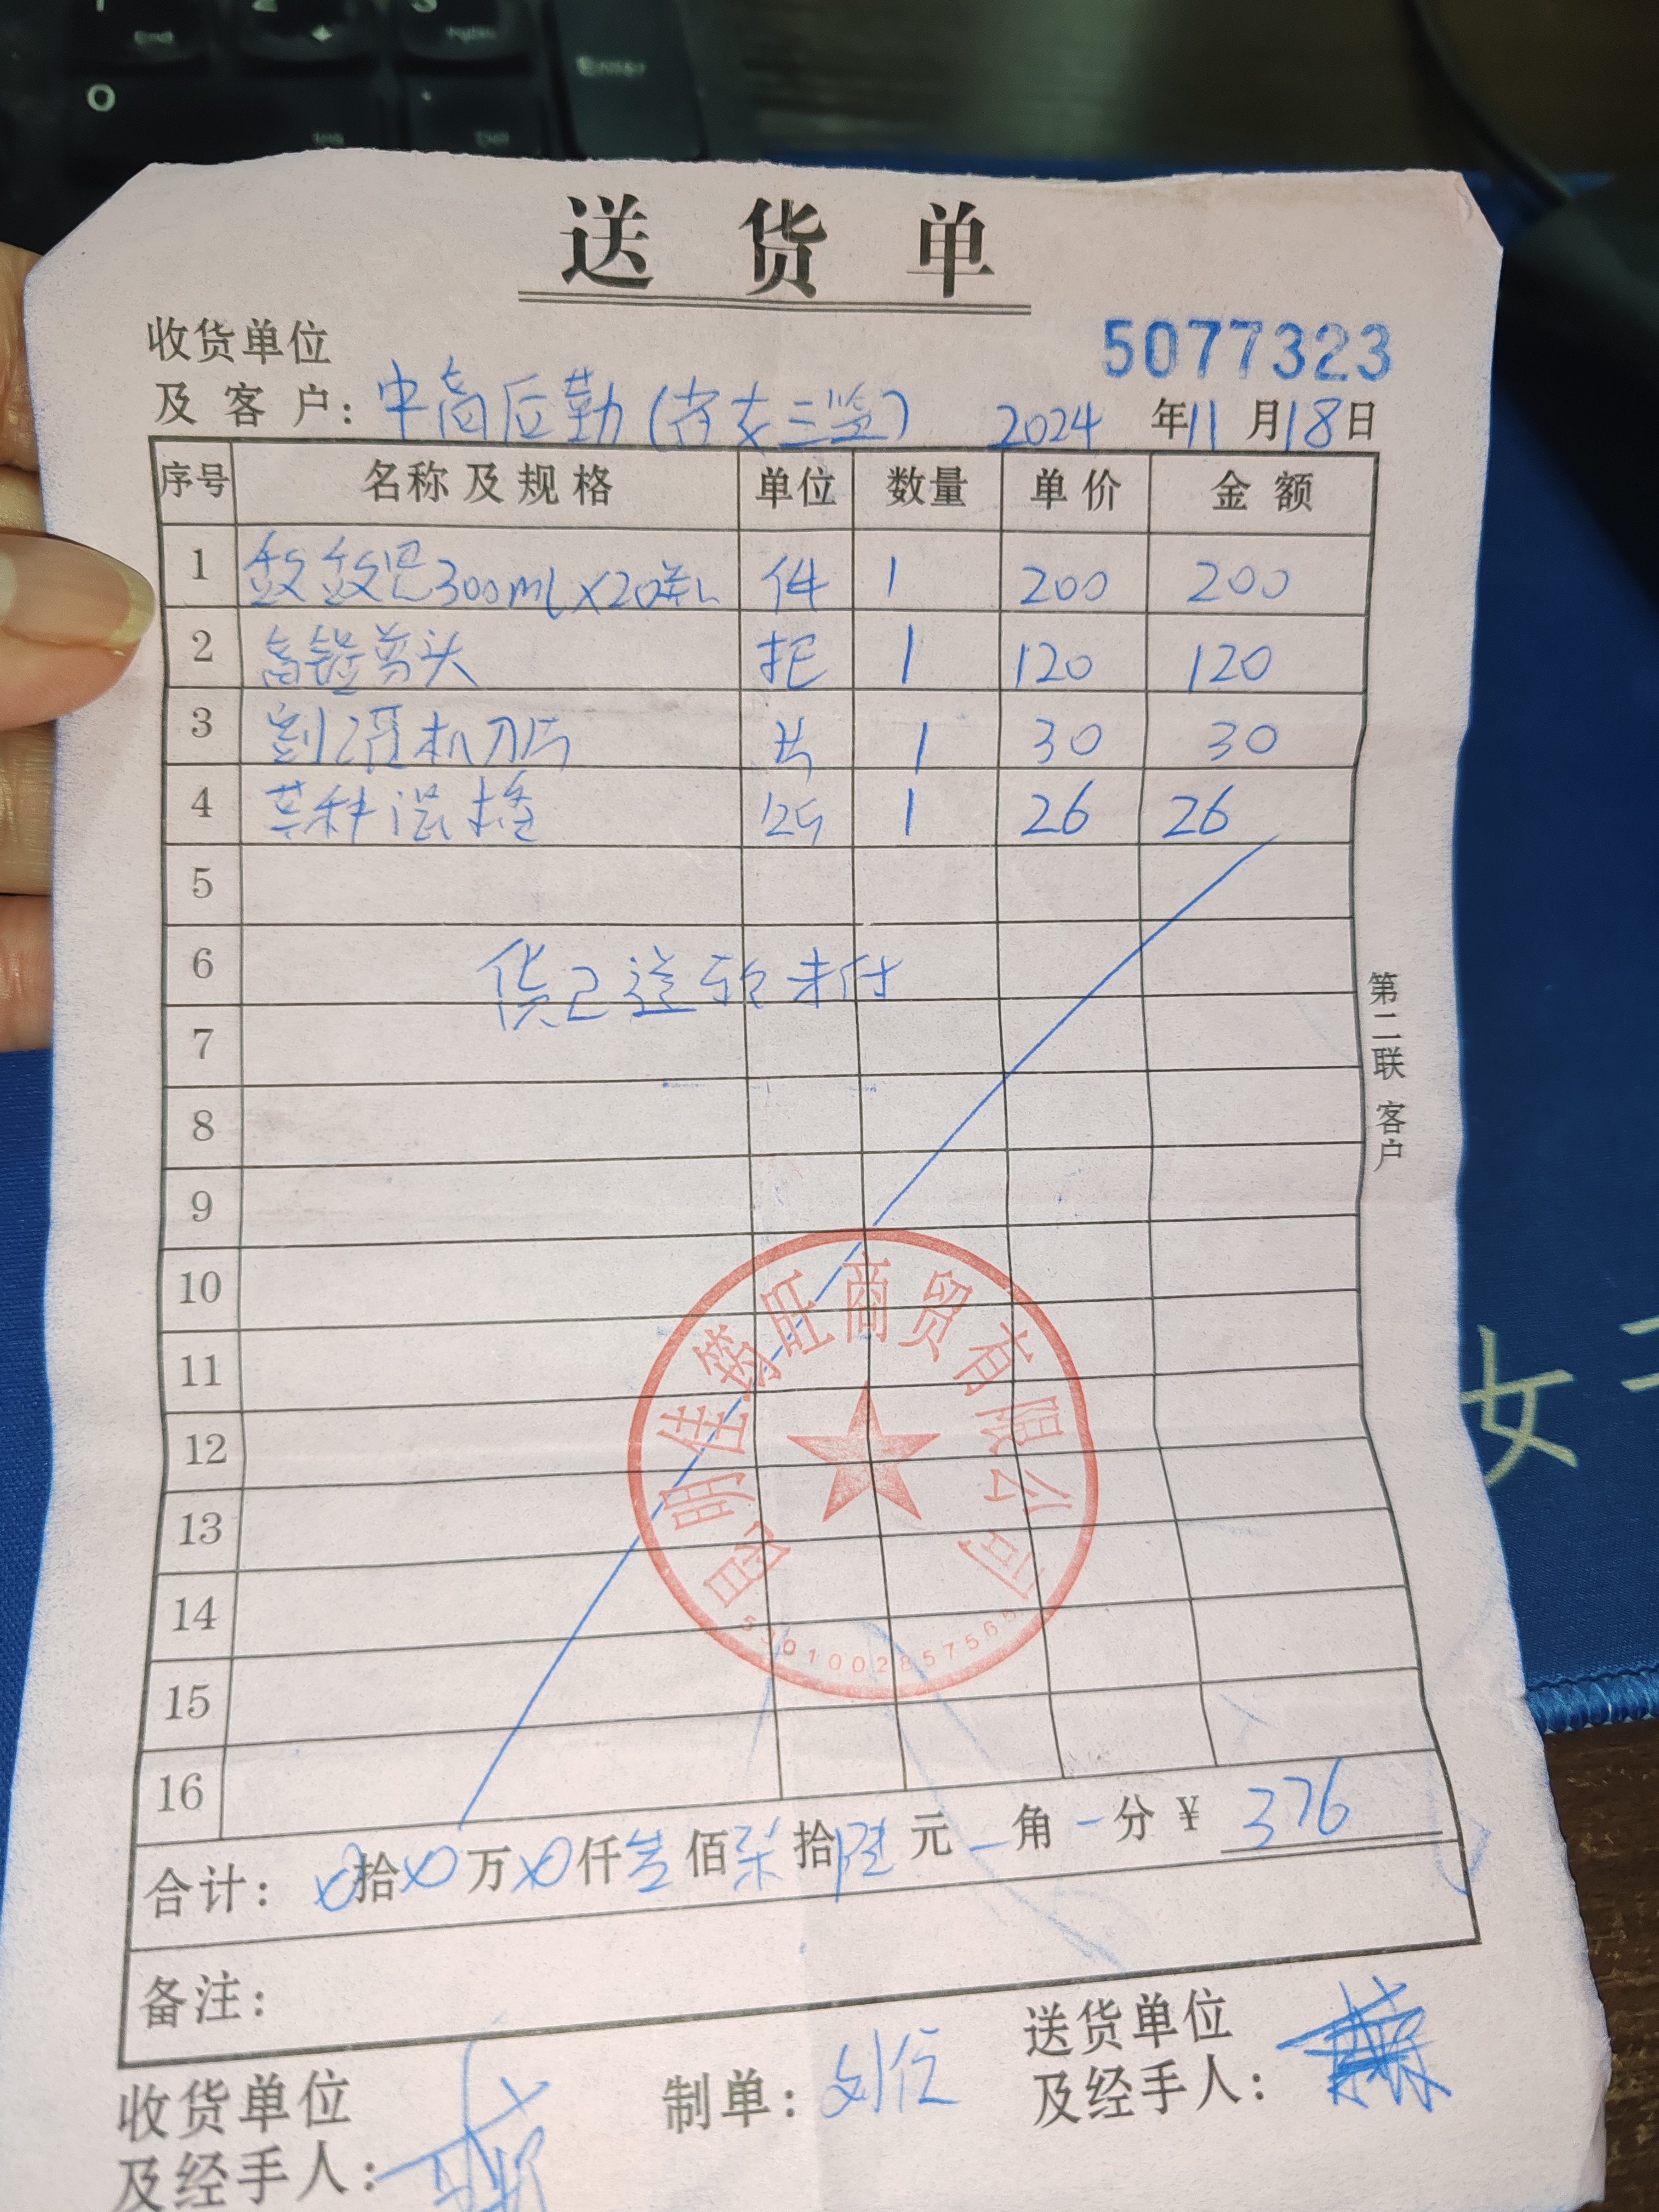 1 2 3
End
Enter
0
Ins
Del
送货单
收货单位
5077323
及客户: 中高后勤(省女三监) 2024 年 11 月 18 日
序号 名称及规格 单位 数量 单价 金额
1 300ml×20瓶 件 1 200 200
2 高 剪头 把 1 120 120
3 割灌机刀片 片 1 30 30
4 草种混播 1 26 26
5
6 货已送款未付
7
8
9
10
11
12
13
14
15
16
合计: 0拾0万0仟叁佰柒拾陆元 角 分 ¥ 376
备注:
第二联 客户
昆明佳筹旺商贸有限公司
女子
收货单位
及经手人:
制单: 刘
送货单位
及经手人: